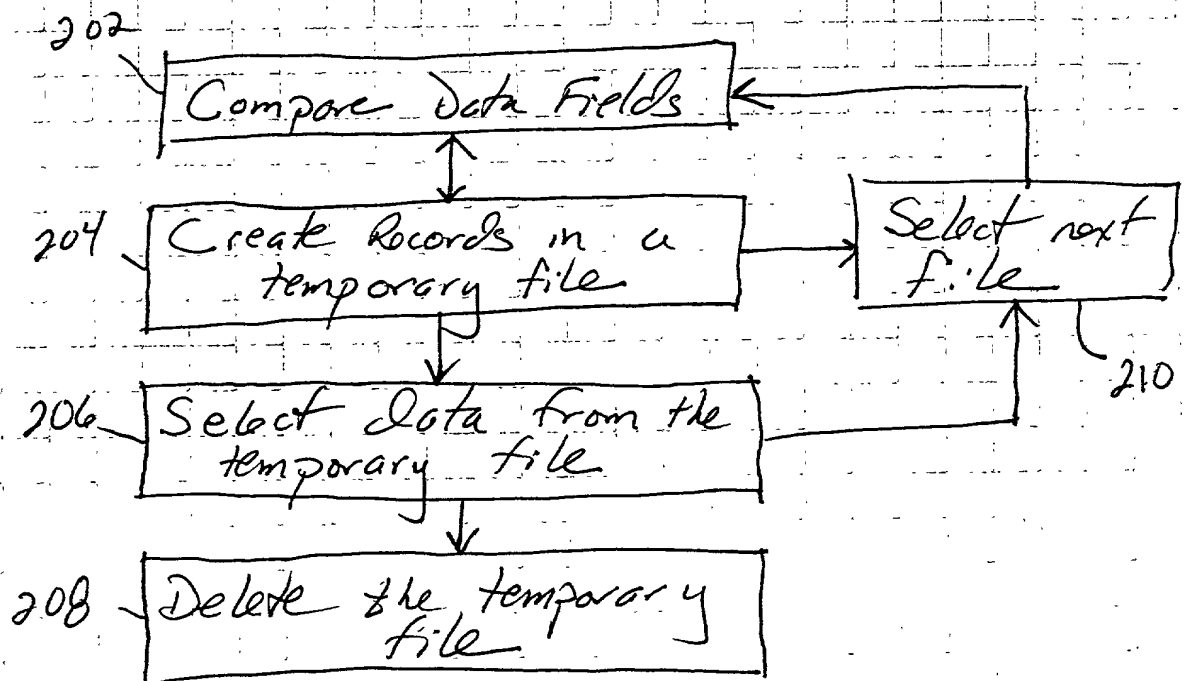 202
Compare Data Fields
204
Create Records in a
temporary file
Select next
file
210
206
Select data from the
temporary file
208
Delete the temporary
file